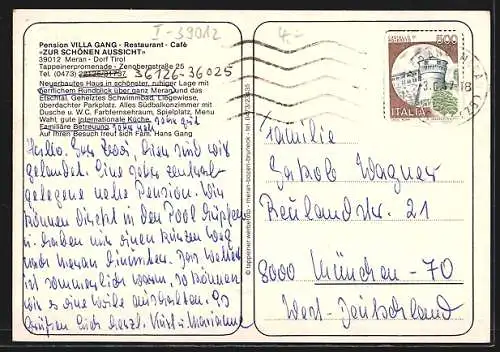 I-39012
4.-
Pension VILLA GANG - Restaurant - Café
«ZUR SCHÖNEN AUSSICHT»
39012 Meran - Dorf Tirol
Tappeinerpromenade - Zenobergstraße 25
Tel. (0473) 36126-36025
Neuerbautes Haus in schönster, ruhiger Lage mit
herrlichem Rundblick über ganz Meran und das
Etschtal. Geheiztes Schwimmbad, Liegewiese,
überdachter Parkplatz. Alles Südbalkonzimmer mit
Dusche u. W.C. Farbfernsehraum, Spielplatz, Menu
Wahl, gute internationale Küche, sehr gut
Familiäre Betreuung,
Auf Ihren Besuch freut sich Fam. Hans Gang
Hallo, hier sind wir
gelandet. Eine sehr zentral
gelegene nette Pension. Wir
können direkt in den Pool hüpfen
u. haben nur einen kurzen Weg
nach Meran hinunter. Das Wetter
ist sommerlich warm, so können
wir es eine Weile aushalten. Es
grüßen Euch herzl. Kurt u. Marianne
© tappeiner werbefoto - meran-bozen-bruneck - tel.
CASTELLO DI
ROVERETO
500
ITALIA
Familie
Jakob Wagner
Reulandstr. 21
8000 München-70
West-Deutschland